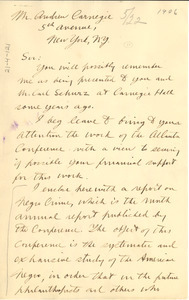 1906
Mr. Andrew Carnegie 5/22
5th avenue,
New York, N.Y.
Sir:
You will possibly remember
me as being presented to you and
Mr Carl Schurz at Carnegie Hall
some years ago.
I beg leave to bring to your
attention the work of the Atlanta
Conference with a view to seeing
if possible your financial support
for this work.
I enclose herewith a report on
Negro Crime, which is the ninth
annual report published by
the Conference. The object of this
Conference is the systematic and
exhaustive study of the American
Negro, in order that in the future
philanthropists and others who